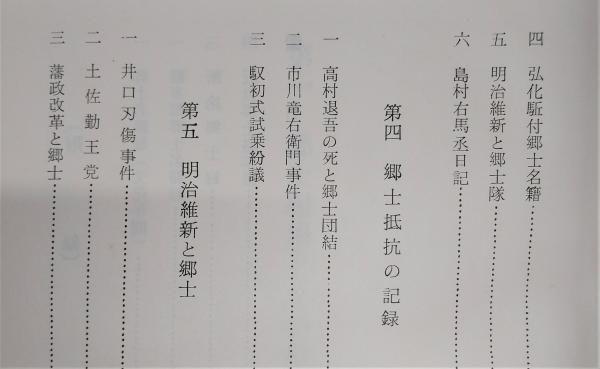 四 弘化駈付郷士名籍……………
五 明治維新と郷士隊……………
六 島村右馬丞日記……………
第四 郷士抵抗の記録
一 高村退吾の死と郷士団結……………
二 市川竜右衛門事件……………
三 馭初式試乗紛議……………
第五 明治維新と郷士
一 井口刃傷事件……………
二 土佐勤王党……………
三 藩政改革と郷士……………